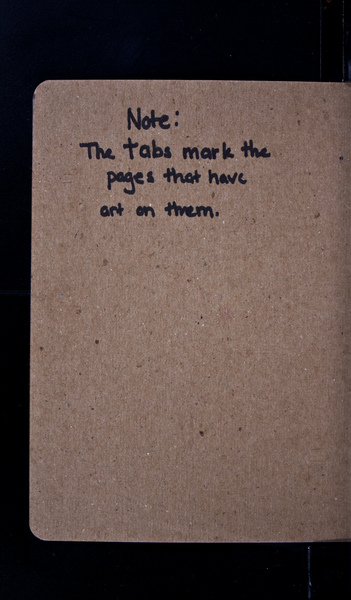 Note:
The tabs mark the
pages that have
art on them.